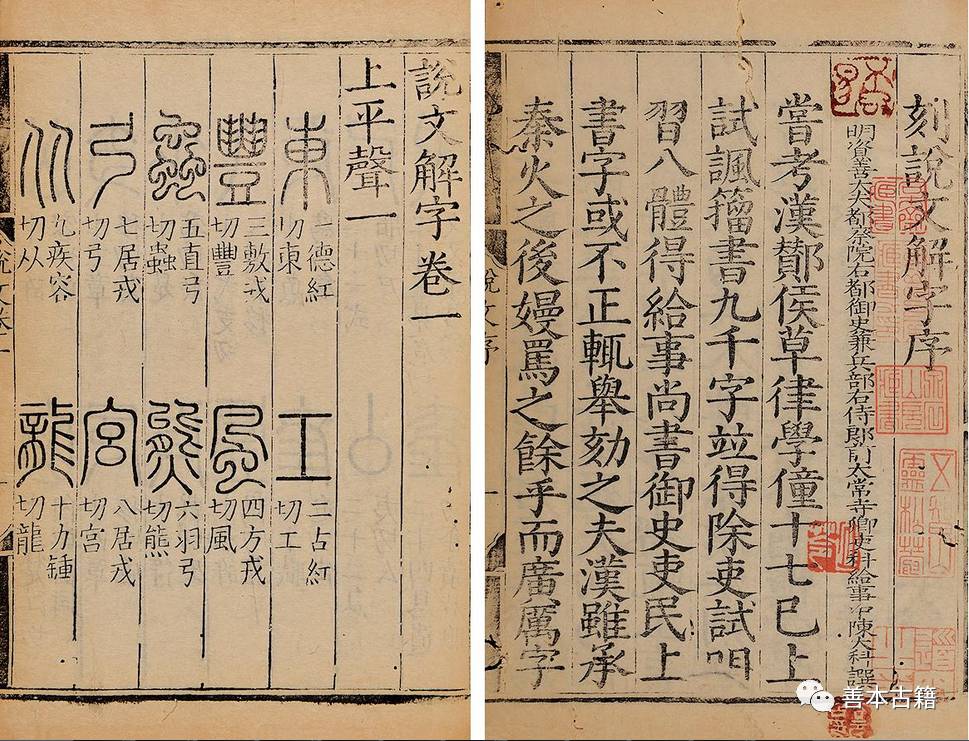 刻說文解字序
明資善大夫都察院右都御史兼兵部右侍郎前太常寺卿吏科給事中陳大科譔
嘗考漢酇侯草律學僮十七已上
試諷籀書九千字竝得除吏試㠯
習八體得給事尚書御史吏民上
書字或不正輒舉劾之夫漢雖承
秦火之後嫚罵之餘乎而廣厲字
說文序
說文解字卷一
上平聲一
東 一德紅切東 工 二占紅切工
豐 三敷戎切豐 風 四方戎切風
蟲 五直弓切蟲 熊 六羽弓切熊
弓 七居戎切弓 宮 八居戎切宮
从 九疾容切从 龍 十力鍾切龍
善本古籍